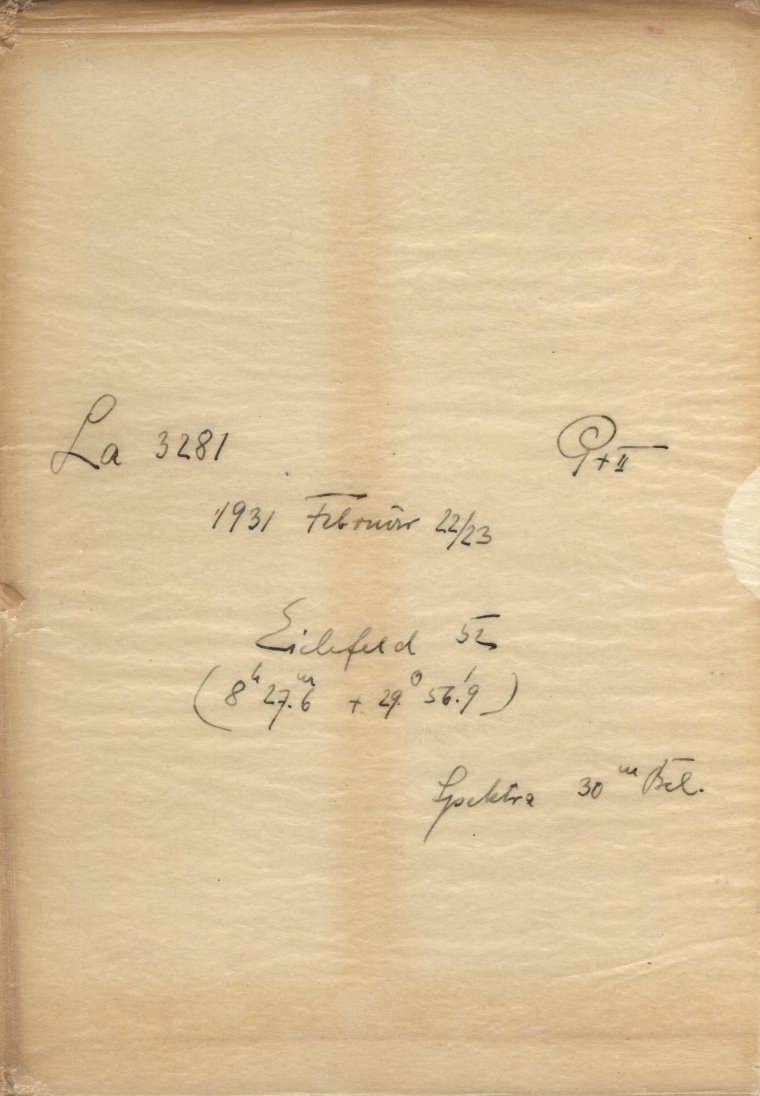 La 3281 P+II
1931 Februar 22/23
Eichfeld 52
(8h 27.m6 + 29.° 56.'9)
Spektra 30m Bel.